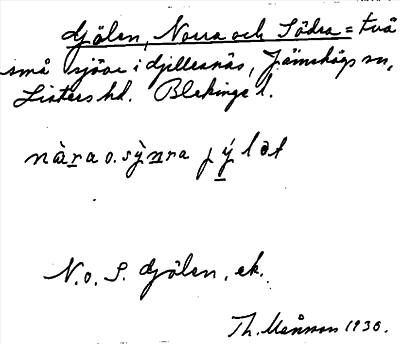 Gölen, Norra och Södra = två
små sjöar i Gillesnäs, Jämshögs sn,
Listers hd. Blekinge l.
nàra o. sỳnra j ý l ə t
N. o. S. Gölen, ek.
Th. 1930.